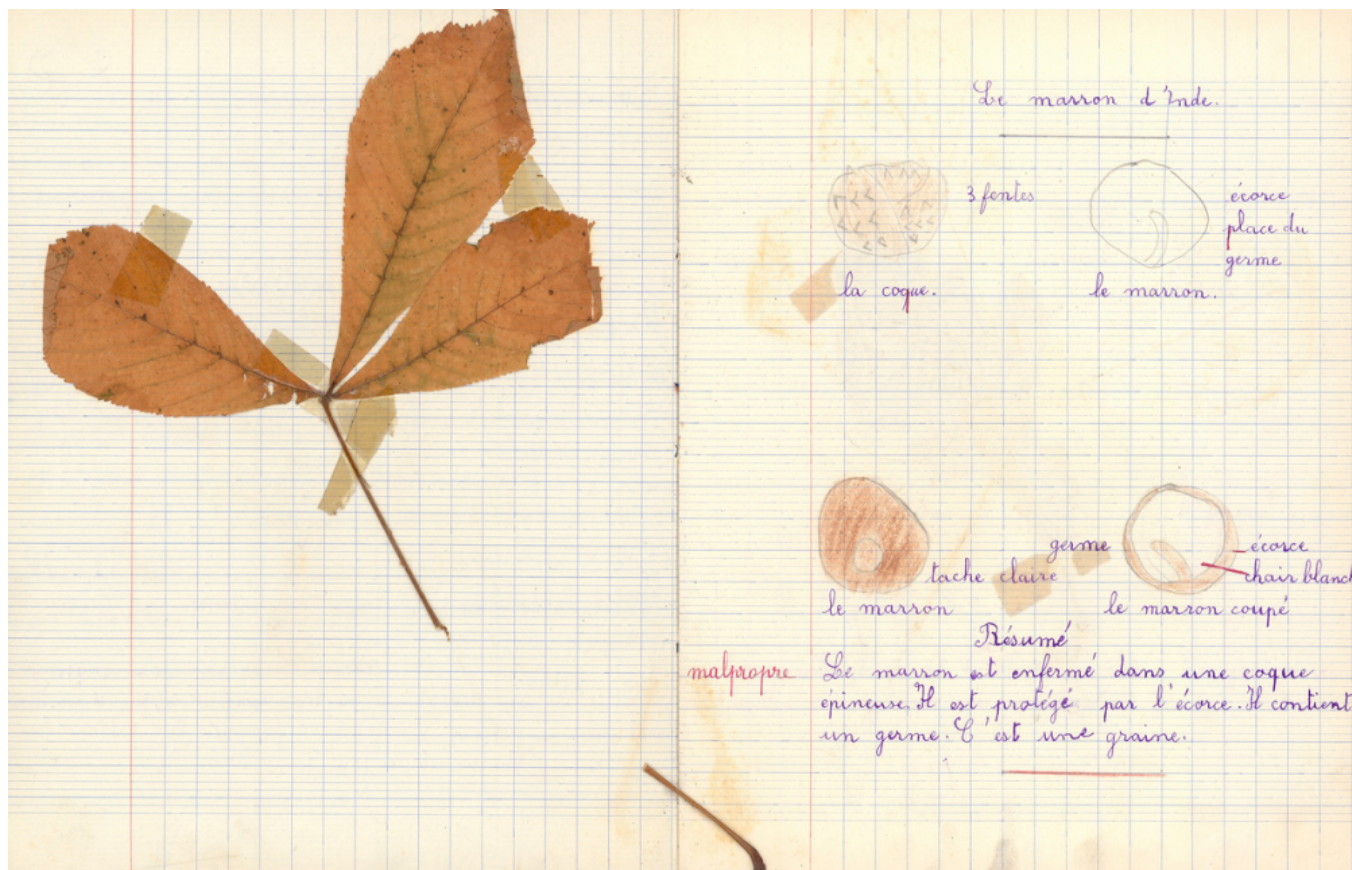 Le marron d'Inde.
3 fentes
écorce
place du
germe
la coque.
le marron.
germe
écorce
tache claire
chair blanch
le marron
le marron coupé
Résumé
malpropre
Le marron est enfermé dans une coque
épineuse. Il est protégé par l'écorce. Il contient
un germe. C'est une graine.